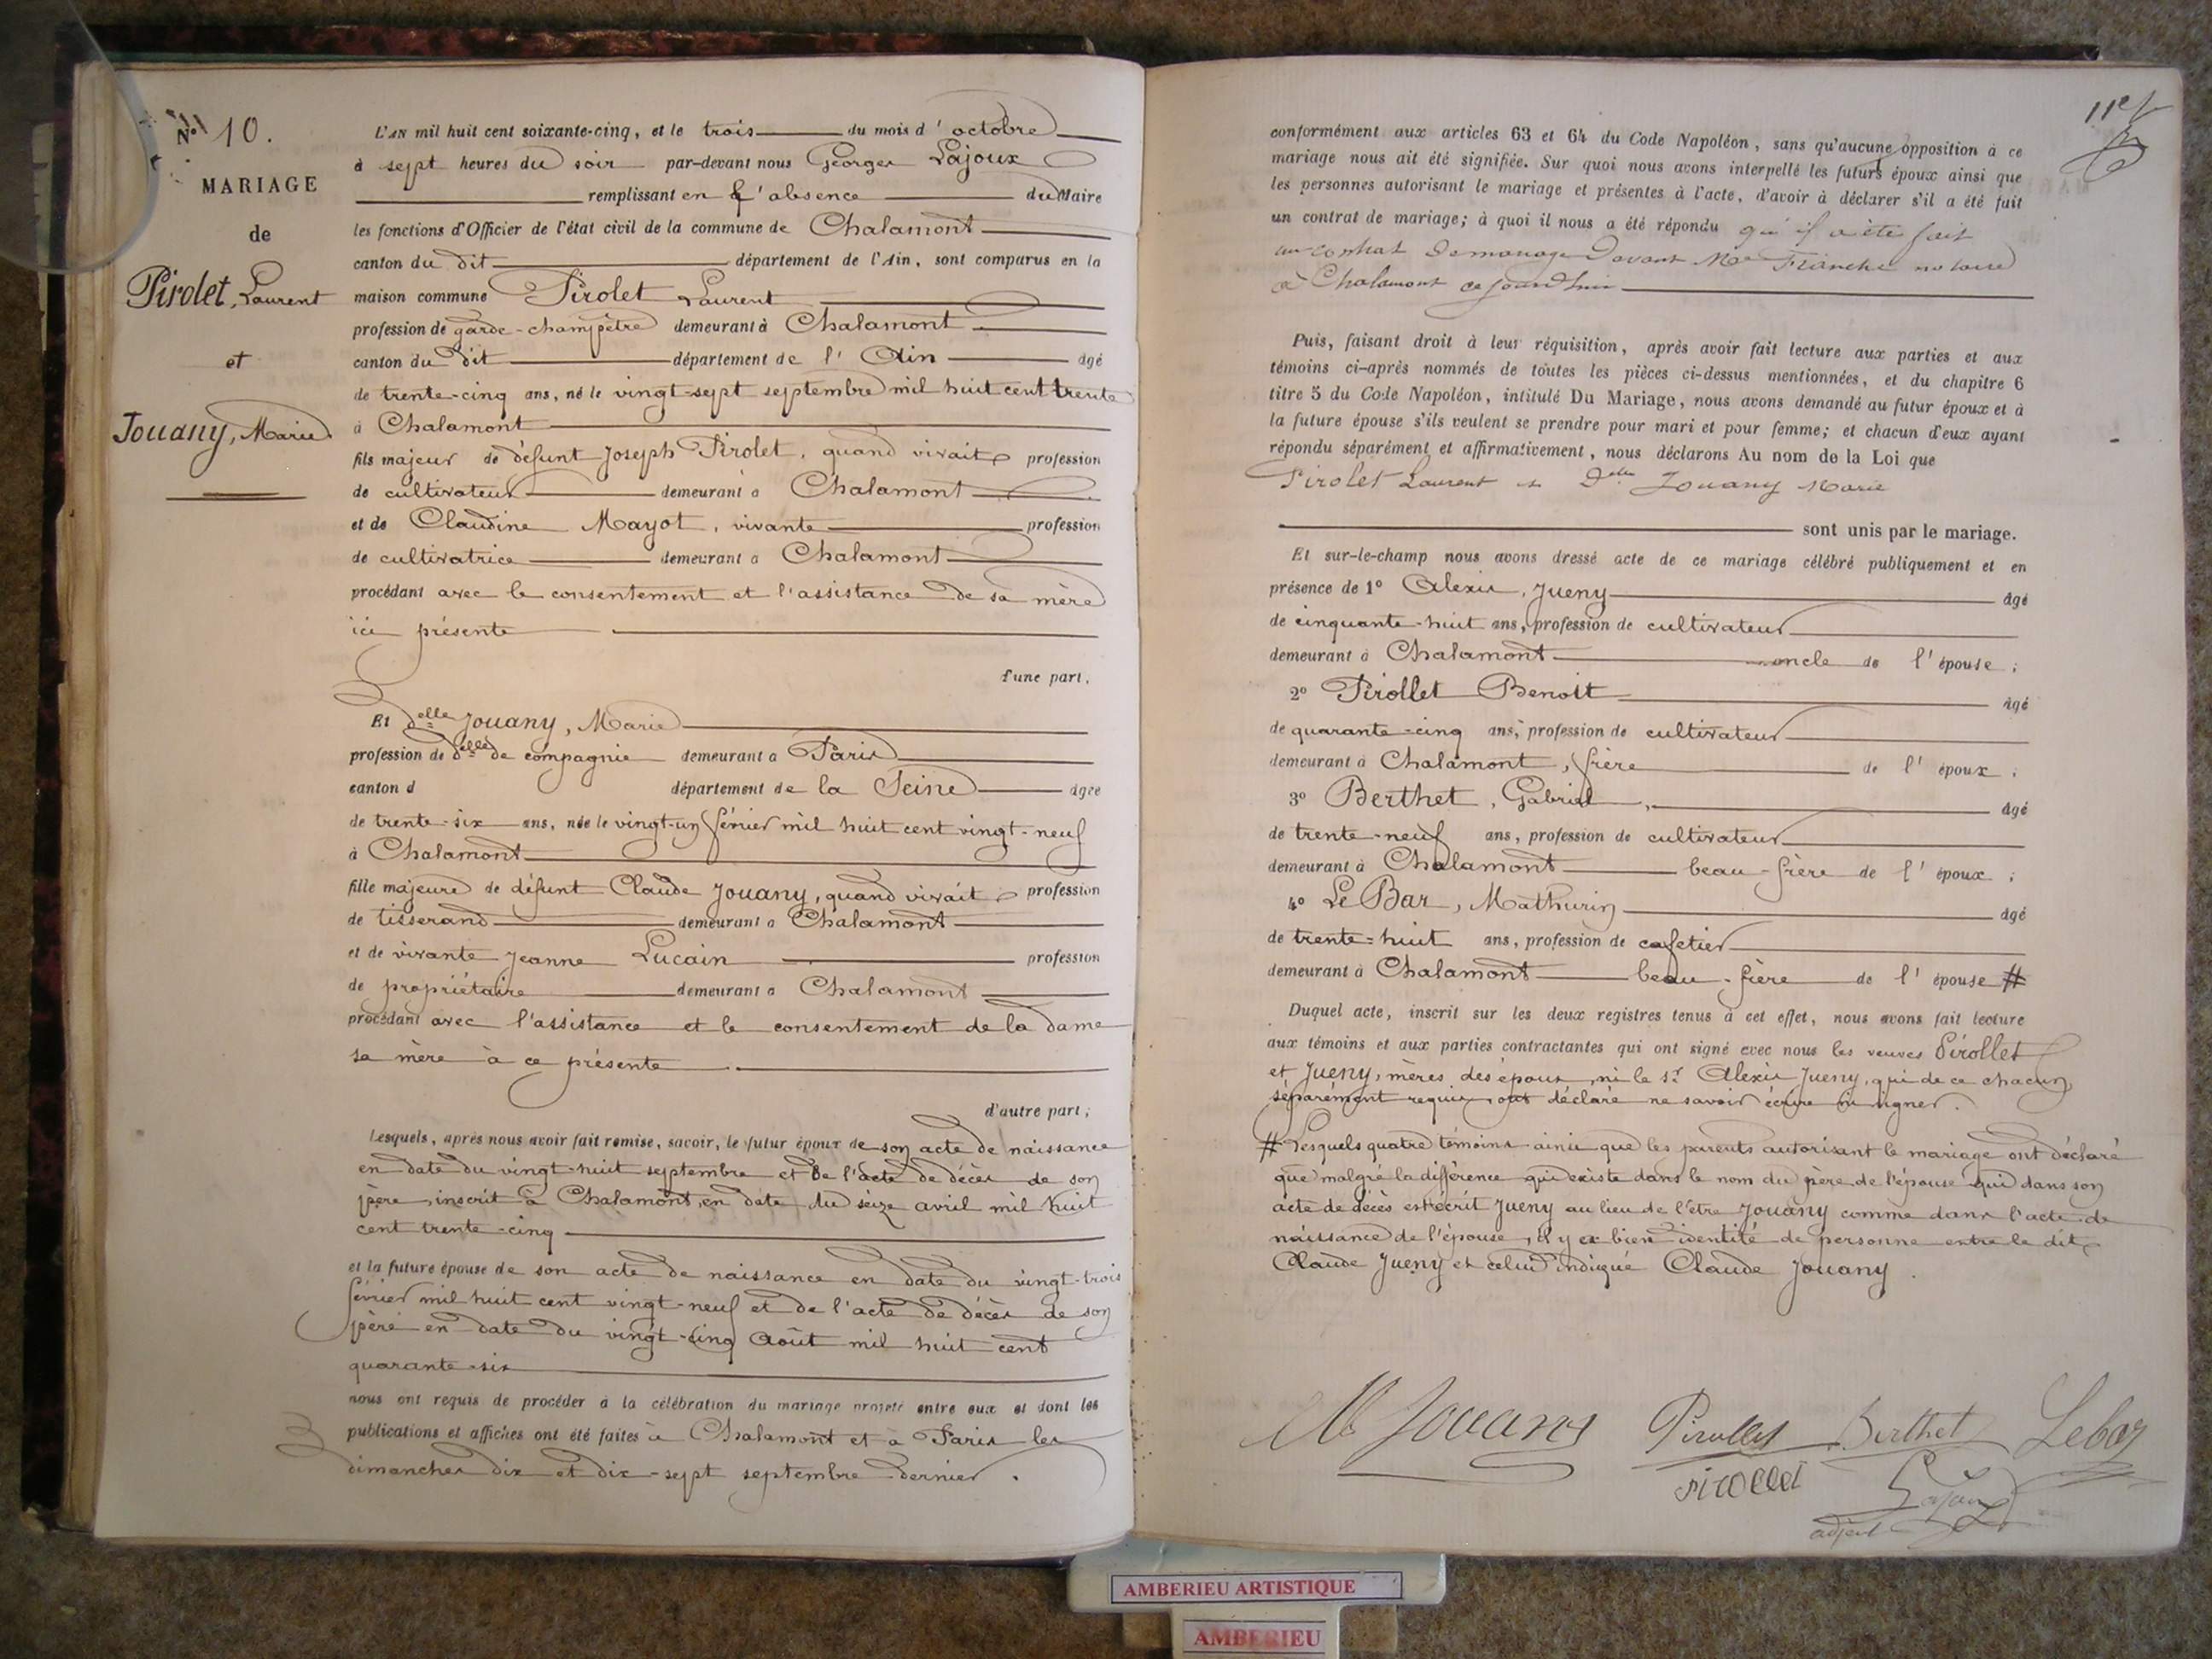 N° 10.
MARIAGE
de
Pirolet, Laurent
et
Jouany, Marie.
L'AN mil huit cent soixante-cinq, et le trois du mois d'octobre
à sept heures du soir par-devant nous Georges Lajoux
remplissant en l'absence du Maire
les fonctions d'Officier de l'état civil de la commune de Chalamont
canton du dit département de l'Ain, sont comparus en la
maison commune Pirolet Laurent
profession de garde-champêtre demeurant à Chalamont
canton du dit département de l'Ain âgé
de trente-cinq ans, né le vingt-sept septembre mil huit cent trente
à Chalamont
fils majeur de défunt Joseph Pirolet, quand vivait profession
de cultivateur demeurant à Chalamont
et de Claudine Mayot, vivante profession
de cultivatrice demeurant à Chalamont
procédant avec le consentement et l'assistance de sa mère
ici présente
d'une part.
Et delle Jouany, Marie
profession de delle de compagnie demeurant à Paris
canton d département de la Seine âgée
de trente-six ans, née le vingt-un février mil huit cent vingt-neuf
à Chalamont
fille majeure de défunt Claude Jouany, quand vivait profession
de tisserand demeurant à Chalamont
et de vivante Jeanne Lucain profession
de propriétaire demeurant à Chalamont
procédant avec l'assistance et le consentement de la dame
sa mère à ce présente
d'autre part;
Lesquels, après nous avoir fait remise, savoir, le futur époux de son acte de naissance
en date du vingt-huit septembre et de l'acte de décès de son
père, inscrit à Chalamont, en date du seize avril mil huit
cent trente-cinq
et la future épouse de son acte de naissance en date du vingt-trois
février mil huit cent vingt-neuf et de l'acte de décès de son
père en date du vingt-cinq Août mil huit cent
quarante-six
nous ont requis de procéder à la célébration du mariage projeté entre eux et dont les
publications et affiches ont été faites à Chalamont et à Paris les
dimanches dix et dix-sept septembre dernier.
11e
conformément aux articles 63 et 64 du Code Napoléon, sans qu'aucune opposition à ce
mariage nous ait été signifiée. Sur quoi nous avons interpellé les futurs époux ainsi que
les personnes autorisant le mariage et présentes à l'acte, d'avoir à déclarer s'il a été fait
un contrat de mariage; à quoi il nous a été répondu qu'il a été fait
un contrat de mariage devant Me Franche notaire
à Chalamont ce jourd'hui
Puis, faisant droit à leur réquisition, après avoir fait lecture aux parties et aux
témoins ci-après nommés de toutes les pièces ci-dessus mentionnées, et du chapitre 6
titre 5 du Code Napoléon, intitulé Du Mariage, nous avons demandé au futur époux et à
la future épouse s'ils veulent se prendre pour mari et pour femme; et chacun d'eux ayant
répondu séparément et affirmativement, nous déclarons Au nom de la Loi que
Pirolet Laurent et Delle Jouany Marie
sont unis par le mariage.
Et sur-le-champ nous avons dressé acte de ce mariage célébré publiquement et en
présence de 1° Alexis, Jueny âgé
de cinquante-huit ans, profession de cultivateur
demeurant à Chalamont oncle de l'épouse;
2° Pirollet Benoit âgé
de quarante-cinq ans, profession de cultivateur
demeurant à Chalamont, frère de l'époux;
3° Berthet, Gabriel, âgé
de trente-neuf ans, profession de cultivateur
demeurant à Chalamont beau-frère de l'époux;
4° Le Bar, Mathurin âgé
de trente-huit ans, profession de cafetier
demeurant à Chalamont beau-frère de l'épouse #
Duquel acte, inscrit sur les deux registres tenus à cet effet, nous avons fait lecture
aux témoins et aux parties contractantes qui ont signé avec nous les veuves Pirollet
et Jueny, mères des époux, ni le sr Alexis Jueny, qui de ce chacun
séparément requis, ont déclaré ne savoir écrire ni signer.
# Lesquels quatre témoins ainsi que les parents autorisant le mariage ont déclaré
que malgré la différence qui existe dans le nom du père de l'épouse qui dans son
acte de décès est écrit Jueny au lieu de l'être Jouany comme dans l'acte de
naissance de l'épouse, il y a bien identité de personne entre le dit
Claude Jueny et celui indiqué Claude Jouany.
M Jouany Pirollet Berthet Lebar
Pirollet Lajoux
adjoint
AMBERIEU ARTISTIQUE
AMBERIEU